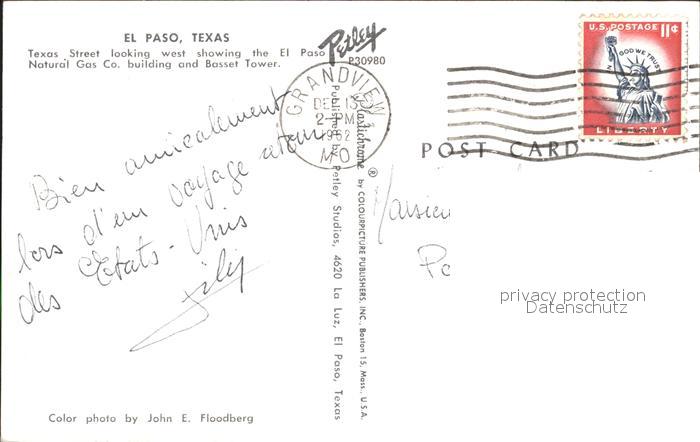 EL PASO, TEXAS
Texas Street looking west showing the El Paso
Natural Gas Co. building and Basset Tower.
Petley
P30980
GRANDVIEW
DEC 13
2- PM
1962
MO.
U.S. POSTAGE 11¢
IN GOD WE TRUST
LIBERTY
POST CARD
Bien amicalement
lors d'un voyage
des Etats-Unis
Plastichrome ® by COLOURPICTURE PUBLISHERS, INC., Boston 15, Mass., U.S.A.
Published by Petley Studios, 4620 La Luz, El Paso, Texas
privacy protection
Datenschutz
Color photo by John E. Floodberg